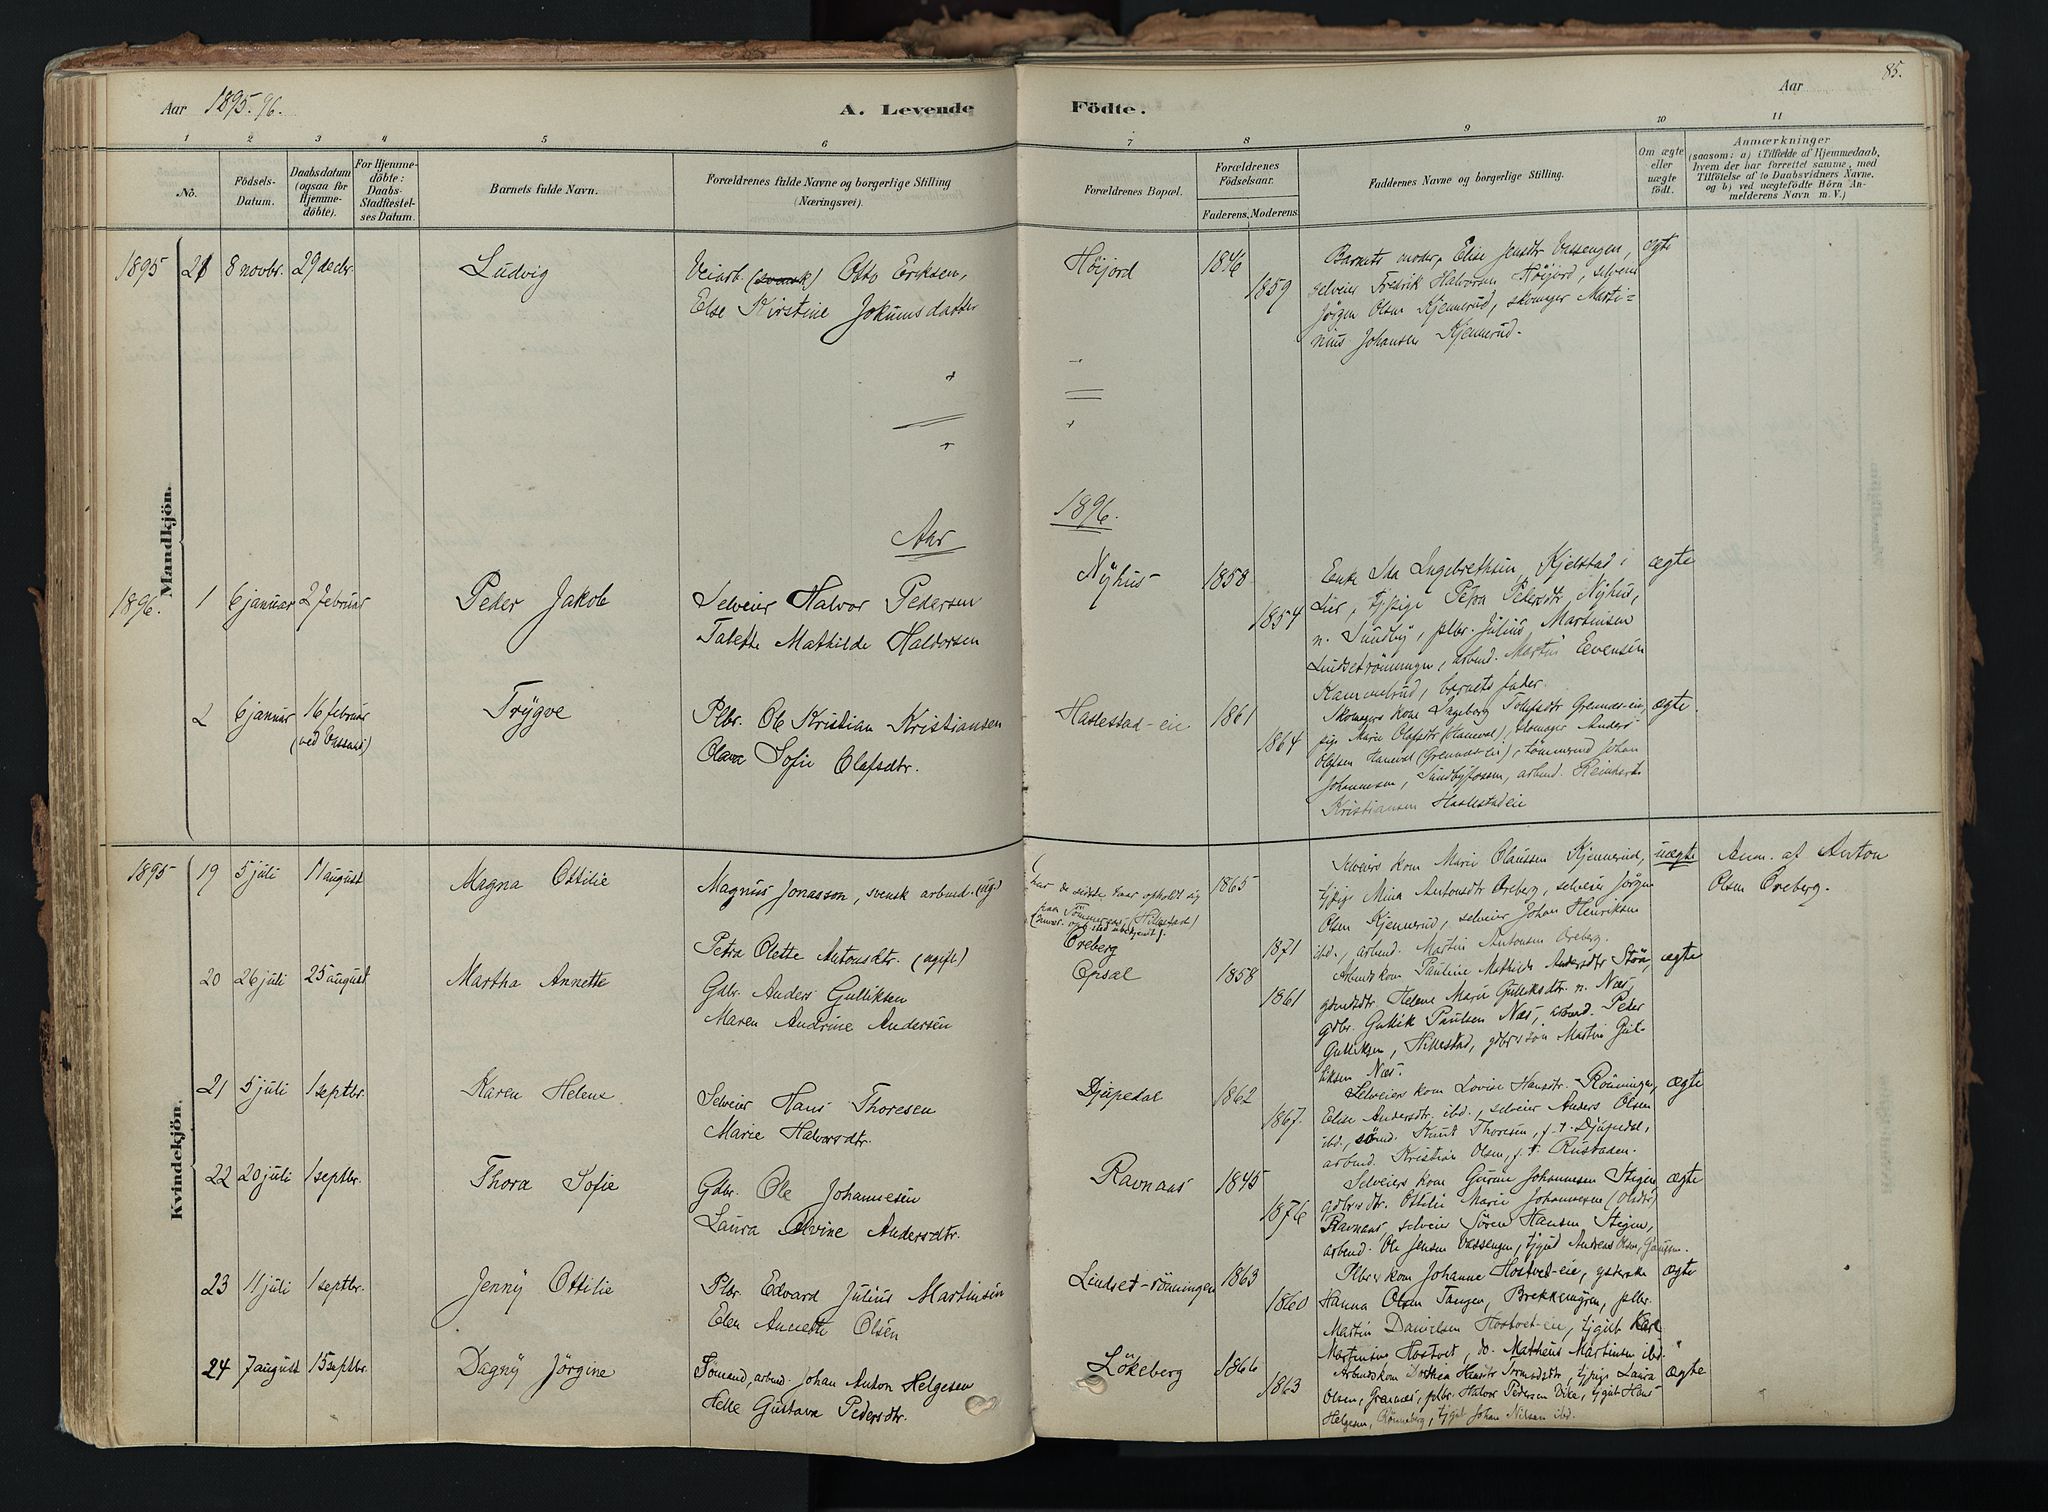 Aar 1895.96.
A. Levende
Födte.
Aar
85.
1 2 3 4 5 6 7 8 9 10 11
No.
Födsels-
Datum.
Daabsdatum
(ogsaa for
Hjemme-
döbte).
For Hjemme-
döbte:
Daabs-
Stadfæstel-
ses Datum.
Barnets fulde Navn.
Forældrenes fulde Navne og borgerlige Stilling
(Næringsvei).
Forældrenes Bopæl.
Forældrenes
Födselsaar.
Faderens. Moderens.
Faddernes Navne og borgerlige Stilling.
Om ægte
eller
uægte
födt.
Anmærkninger
(saasom: a) i Tilfælde af Hjemmedaab,
hvem der har forrettet samme, med
Tilföielse af to Daabsvidners Navne,
og b) ved uægtefödte Börn An-
melderens Navn m. V.)
Mandkjön.
1895 21 8 novbr. 29 decbr. Ludvig
Veiarb (svensk) Otto Eriksen,
Else Kirstine Jokumsdatter
Höijord 1846
1859
Barnets moder, Elise Jensdtr Vassengen,
selveier Fredrik Halvorsen Höijord, selveier
Jörgen Olsen Kjennerud, skomager Marti=
nius Johansen Kjennerud.
ægte
Aar
1896.
1896. 1 6 januar 2 februar Peder Jakob
Selveier Halvor Pedersen
Talette Mathilde Halvorsen
Nÿhus 1858
1854
Enke Ida Ingebrethsen Kjelstad i
Lier, tjpige Petra Pedersdtr Nÿhus,
n. Sundbÿ, plbr. Julius Martinsen
Lindsetrönningen, arbmd. Martin Evensen
Kammelrud, barnets fader.
ægte
2 6 januar 16 februar
(ved Vassaas)
Trÿgve
Plbr. Ole Kristian Kristiansen
Olava Sofie Olafsdtr.
Haslestad-eie 1861
1864
Skomagers kone Ingeborg Grennes-eie,
pige Marie Olafsdtr (Haneval), skomager Anders
Olafsen Haneval (Grennes-eie), tömmermd Johan
Johannesen, Sundbyfossen, arbmd. Reinhardt
Kristiansen Haslestadeie
ægte.
Kvindekjön.
1895 19 5 juli 11 august Magna Ottilie
Magnus Jonasson, svensk arbmd. (ug.)
Petra Olette Antonsdtr. (ugift)
har de sidste aar opholdt sig
paa Tömmeraas (Hillestad)
Öreberg
1865
1871
Selveiers kone Marie Olaussen Kjennerud,
tjpige Mina Antonsdtr Öreberg, selveier Jörgen
Olsen Kjennerud, selveier Johan Henriksen
ibd., arbmd. Martin Antonsen Öreberg.
uægte
Anm. af Anton
Olsen Öreberg.
20 26 juli 25 august Martha Annette
Gdbr. Anders Gulliksen
Maren Andrine Andersen
Opsal 1858
1861
Arbmds kone Pauline Mathilde Andersdtr
gdmdsdtr. Helene Marie Gulliksdtr. n. Næs,
gdbr. Gullik Paulsen Næs, arbmd. Peder
Gulliksen, Hillestad, gdbrssön Martin Gul-
liksen Næs.
ægte
21 5 juli 1 septbr. Karen Helene
Selveier Hans Thoresen
Marie Halvorsdtr.
Djupedal 1862
1867.
Selveiers kone Lovise Hansdtr. Rönningen,
Elise Andersdtr. ibd., selveier Anders Olsen
ibd., sömd. Knut Thoresen, f. t. Djupedal,
arbmd. Kristian Olsen, f. t. Rustaden.
ægte
22 20 juli 1 septbr. Thora Sofie
Gdbr. Ole Johannesen
Laura Elvine Andersdtr.
Ravnaas 1845
1876
Selveiers kone Gurine Johannesen Stigen,
gdbrsdtr. Ottilie Marie Johannesen (Olsdtr)
Ravnaas, selveier Sören Hansen Stigen,
arbmd. Ole Jensen Vassengen, tjgut Andreas Olsen,
ægte
23 11 juli 1 septbr. Jennÿ Ottilie
Plbr. Edvard Julius Martinsen
Elen Annette Olsen
Lindset-rönningen 1863
1860
Plbrs kone Johanne Hostvet-eie,
Hanna Olsen Tangen, plbr.
Martin Danielsen Hostvet-eie, tjgut Karl
Martinsen Hostvet, do. Matheus Martinsen ibd.
ægte
24 7 august 15 septbr. Dagnÿ Jörgine
Sömand, arbmd. Johan Anton Helgesen
Helle Gustava Pedersdtr.
Lökeberg 1866
1863
Arbmds kone Dorthea tjpige Laura
Olsen, Grennes, plbr. Halvor Pedersen Vike, tjgut Hans
Helgesen, Rönneberg, tjgut Johan Nilsen ibd.
ægte